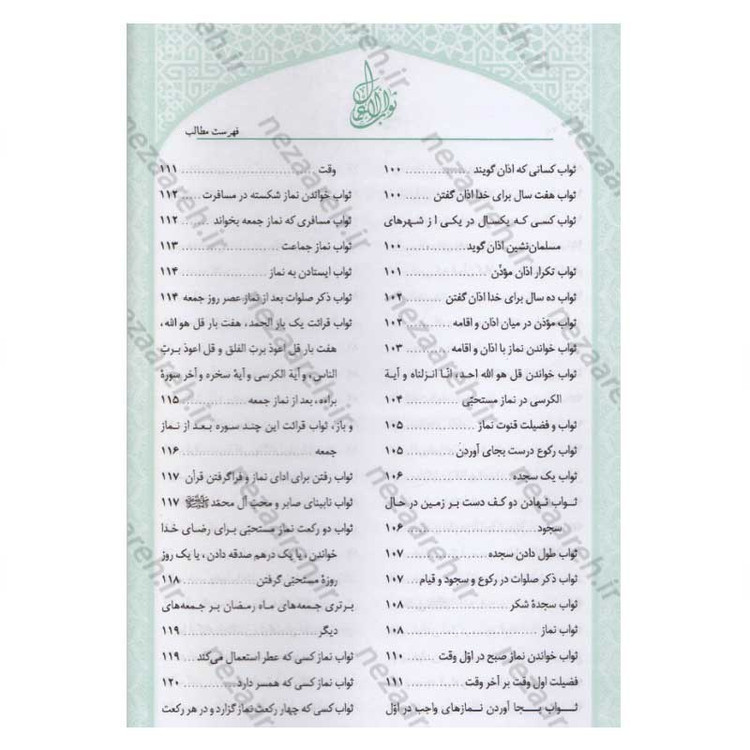 ثواب الاعمال
فهرست مطالب
ثواب کسانی که اذان گویند ............... ۱۰۰
ثواب هفت سال برای خدا اذان گفتن ....... ۱۰۰
ثواب کسی که یکسال در یکی از شهرهای
مسلمان‌نشین اذان گوید ................. ۱۰۰
ثواب تکرار اذان مؤذّن .................... ۱۰۱
ثواب ده سال برای خدا اذان گفتن ......... ۱۰۲
ثواب مؤذن در میان اذان و اقامه ........... ۱۰۲
ثواب خواندن نماز با اذان و اقامه .......... ۱۰۳
ثواب خواندن قل هو الله احد، انّا انزلناه و آیة
الکرسی در نماز مستحبّی ............... ۱۰۴
ثواب و فضیلت قنوت نماز ................ ۱۰۵
ثواب رکوع درست بجای آوردن ............ ۱۰۵
ثواب یک سجده ......................... ۱۰۶
ثواب نهادن دو کف دست بر زمین در حال
سجود ................................. ۱۰۶
ثواب طول دادن سجده ................... ۱۰۷
ثواب ذکر صلوات در رکوع و سجود و قیام ... ۱۰۷
ثواب سجدۀ شکر ........................ ۱۰۸
ثواب نماز .............................. ۱۰۸
ثواب خواندن نماز صبح در اوّل وقت ....... ۱۱۰
فضیلت اول وقت بر آخر وقت ............. ۱۱۱
ثواب بجا آوردن نمازهای واجب در اوّل
وقت .................................. ۱۱۱
ثواب خواندن نماز شکسته در مسافرت .... ۱۱۲
ثواب مسافری که نماز جمعه بخواند ....... ۱۱۲
ثواب نماز جماعت ....................... ۱۱۳
ثواب ایستادن به نماز .................... ۱۱۴
ثواب ذکر صلوات بعد از نماز عصر روز جمعه ۱۱۴
ثواب قرائت یک بار الحمد، هفت بار قل هو الله،
هفت بار قل اعوذ بربّ الفلق و قل اعوذ بربّ
الناس، و آیة الکرسی و آیۀ سخره و آخر سورۀ
براءه، بعد از نماز جمعه ................ ۱۱۵
و باز، ثواب قرائت این چند سوره بعد از نماز
جمعه ................................. ۱۱۶
ثواب رفتن برای ادای نماز و فراگرفتن قرآن ۱۱۷
ثواب نابینای صابر و محبّ آل محمّد ﷺ ۱۱۷
ثواب دو رکعت نماز مستحبّی برای رضای خدا
خواندن، یا یک درهم صدقه دادن، یا یک روز
روزۀ مستحبّی گرفتن ................... ۱۱۸
برتری جمعه‌های ماه رمضان بر جمعه‌های
دیگر .................................. ۱۱۹
ثواب نماز کسی که عطر استعمال می‌کند .. ۱۱۹
ثواب نماز کسی که همسر دارد ............ ۱۲۰
ثواب کسی که چهار رکعت نماز گزارد و در هر رکعت
nezaareh.ir